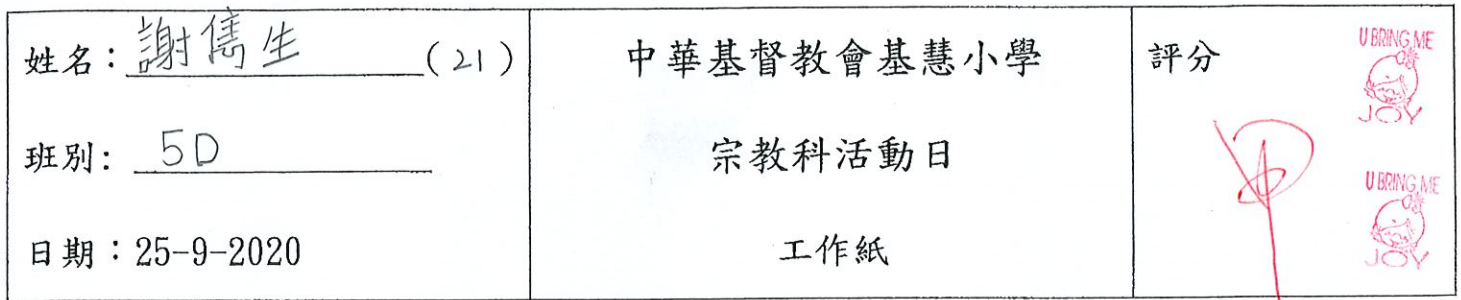 姓名：謝雋生 (21)
班別: 5D
日期：25-9-2020
中華基督教會基慧小學
宗教科活動日
工作紙
評分
甲
U BRING ME
JOY
U BRING ME
JOY